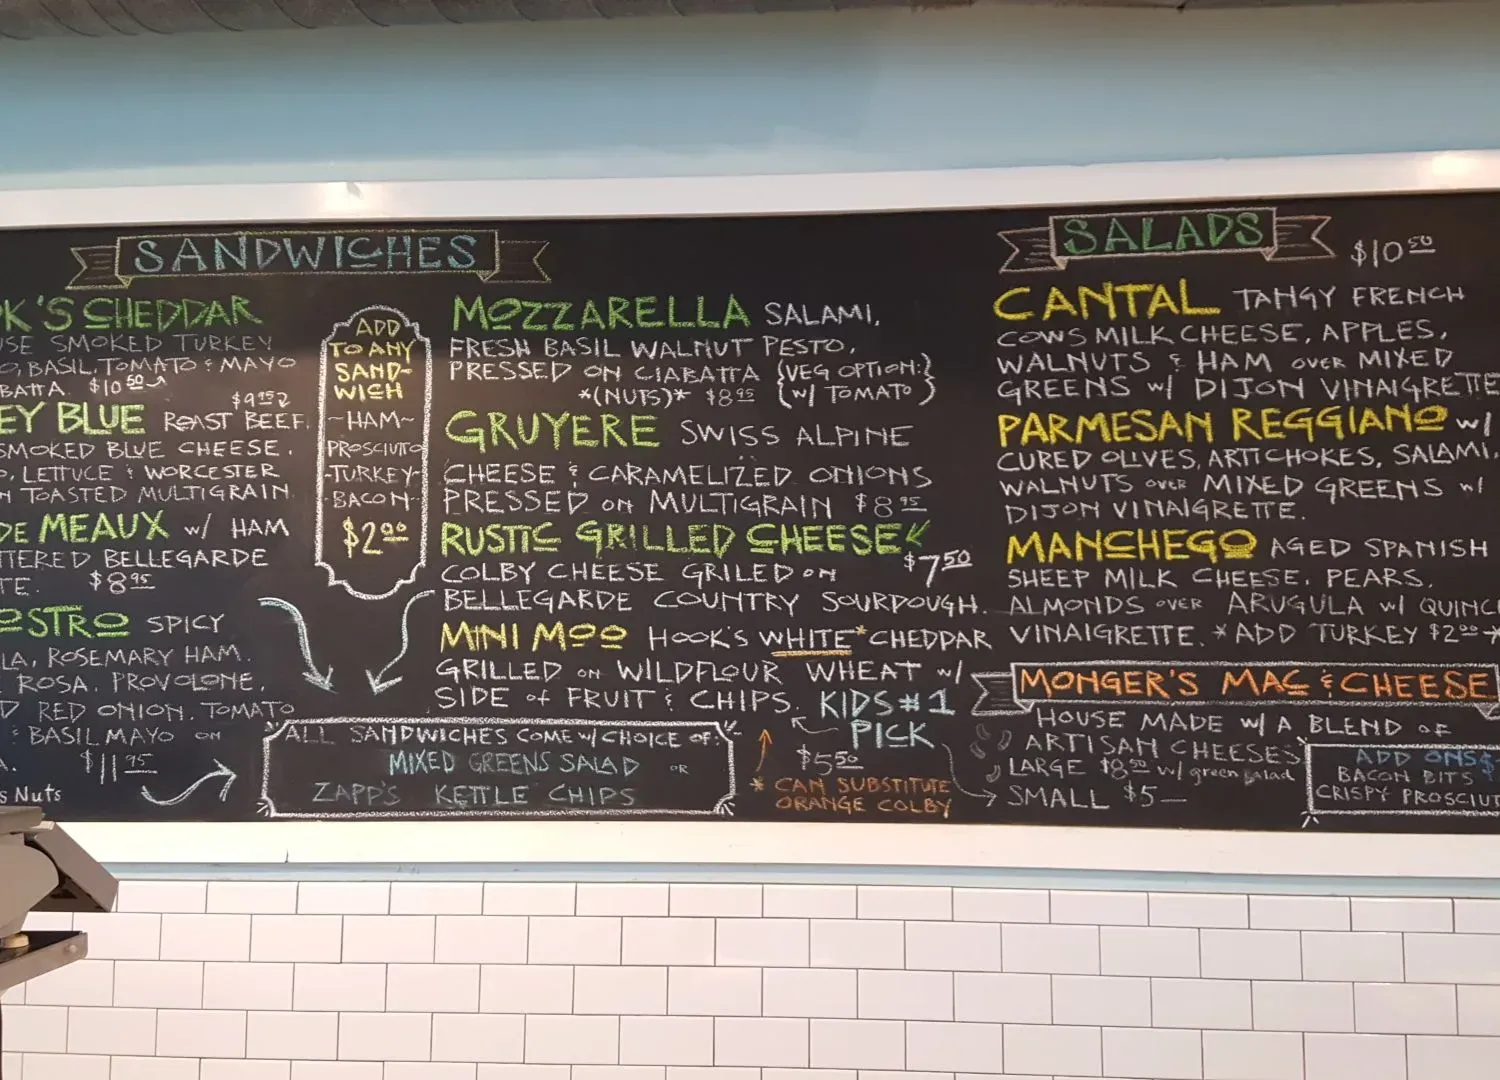 SANDWICHES
K'S CHEDDAR
USE SMOKED TURKEY
O, BASIL, TOMATO & MAYO
BATTA. $10 50
$9 95
EY BLUE ROAST BEEF,
SMOKED BLUE CHEESE,
, LETTUCE & WORCESTER
N TOASTED MULTIGRAIN
DE MEAUX w/ HAM
TTERED BELLEGARDE
TE. $8 95
OSTRO SPICY
LA, ROSEMARY HAM.
ROSA, PROVOLONE,
D RED ONION, TOMATO
& BASIL MAYO ON
A. $11 95
s Nuts
ADD
TO ANY
SAND-
WICH
~HAM~
PROSCIUTTO
-TURKEY-
BACON
$2.00
MOZZARELLA SALAMI,
FRESH BASIL WALNUT PESTO,
PRESSED ON CIABATTA
*(NUTS)* $8 95
{VEG OPTION:}
{w/ TOMATO}
GRUYERE SWISS ALPINE
CHEESE & CARAMELIZED ONIONS
PRESSED ON MULTIGRAIN $8 95
RUSTIC GRILLED CHEESE
COLBY CHEESE GRILED ON $7 50
BELLEGARDE COUNTRY SOURDOUGH.
MINI MOO HOOK'S WHITE* CHEDDAR
GRILLED ON WILDFLOUR WHEAT w/
SIDE OF FRUIT & CHIPS.
KIDS #1
PICK
$5 50
* CAN SUBSTITUTE
ORANGE COLBY
ALL SANDWICHES COME w/ CHOICE OF:
MIXED GREENS SALAD OR
ZAPP'S KETTLE CHIPS
SALADS
$10 50
CANTAL TANGY FRENCH
COWS MILK CHEESE, APPLES,
WALNUTS & HAM OVER MIXED
GREENS w/ DIJON VINAIGRETTE
PARMESAN REGGIANO w/
CURED OLIVES, ARTICHOKES, SALAMI,
WALNUTS OVER MIXED GREENS w/
DIJON VINAIGRETTE.
MANCHEGO AGED SPANISH
SHEEP MILK CHEESE, PEARS,
ALMONDS OVER ARUGULA w/ QUINC
VINAIGRETTE. *ADD TURKEY $2 00
MONGER'S MAC & CHEESE
HOUSE MADE w/ A BLEND OF
ARTISAN CHEESES
LARGE $8 50 w/ green salad
SMALL $5—
ADD ONS $
BACON BITS
CRISPY PROSCIUT